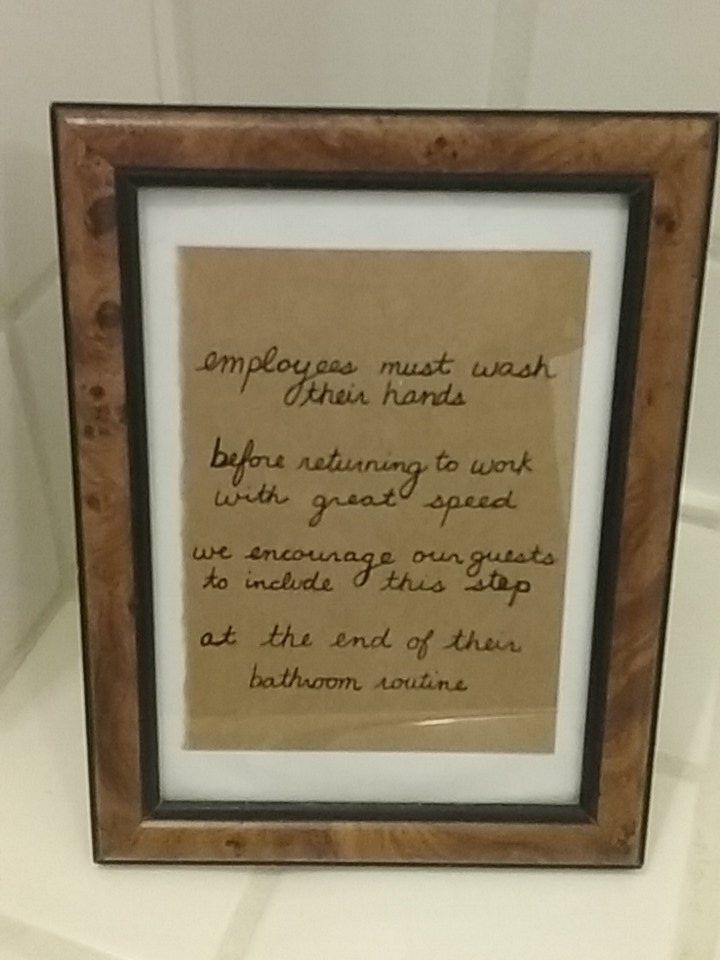 employees must wash
their hands
before returning to work
with great speed
we encourage our guests
to include this step
at the end of their
bathroom routine